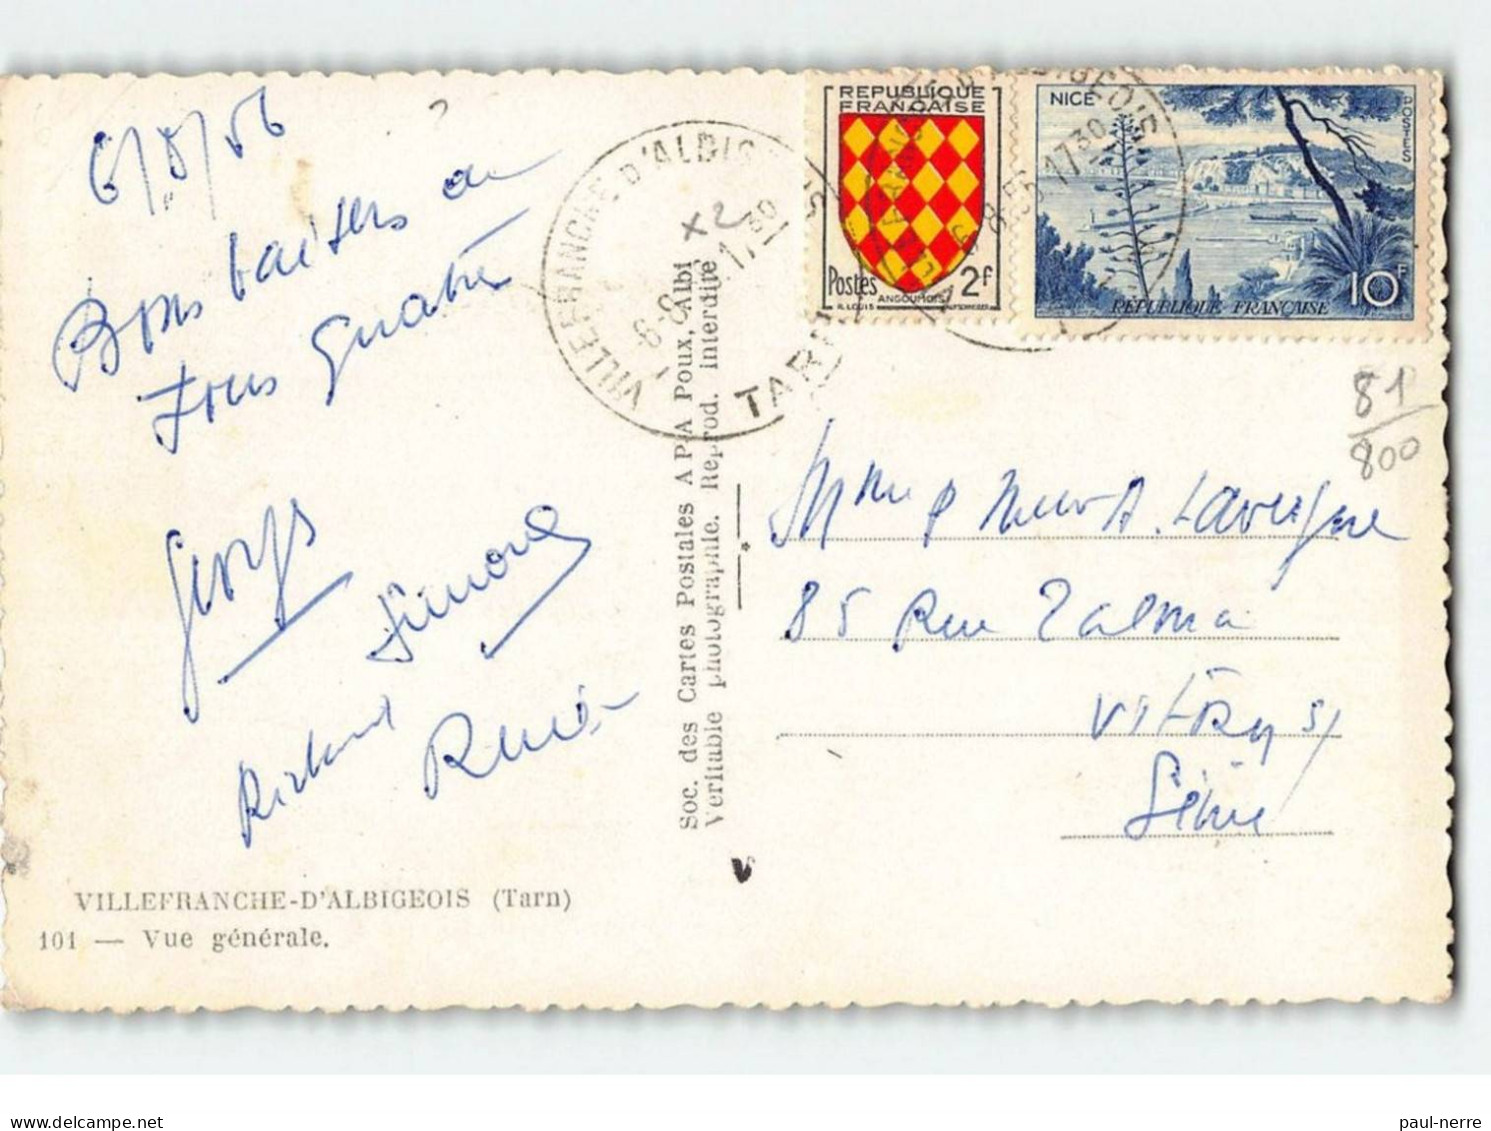 6/8/56
Bons baisers au
tous quatre
Georges
Simone
Richard
Renée
VILLEFRANCHE-D'ALBIGEOIS (Tarn)
101 — Vue générale.
Soc. des Cartes Postales A P A Poux, Albi
Veritable photographie. Reprod. interdite
VILLEFRANCHE D'ALBIG
6-8
17 30
TARN
x2
REPUBLIQUE
FRANÇAISE
Postes 2F
ANGOUMOIS
R. LOUIS
NICE
POSTES
10F
REPUBLIQUE FRANÇAISE
17 30
81
800
A. Lavergne
85 Rue Talma
Vitry s/
Seine
paul-nerre